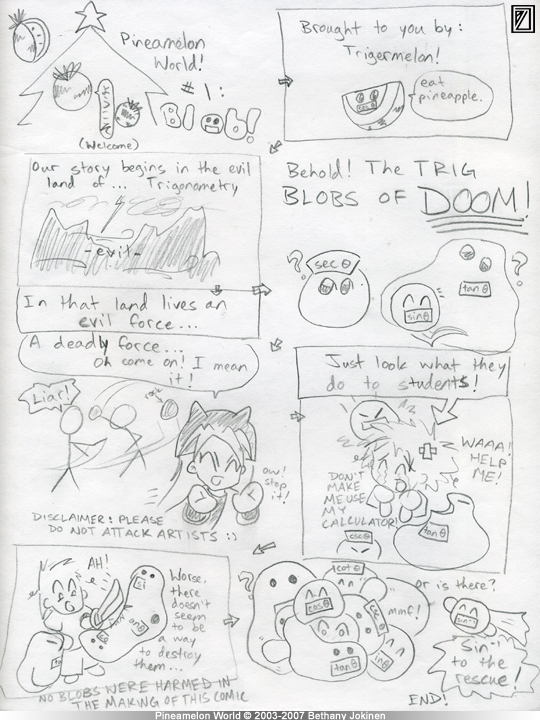 Pineamelon
World!
#1:
Blob!
(Welcome)
Brought to you by:
Trigermelon!
eat
pineapple.
Our story begins in the evil
land of... Trigonometry
-evil-
In that land lives an
evil force...
Behold! The TRIG
BLOBS OF DOOM!
?
sec θ
sin θ
tan θ
?
A deadly force...
oh come on! I mean
it!
Liar!
ow!
stop
it!
DISCLAIMER: PLEASE
DO NOT ATTACK ARTISTS :)
Just look what they
do to students!
WAAA!
HELP
ME!
DON'T
MAKE
ME USE
MY
CALCULATOR!
csc θ
tan θ
AH!
Worse,
there
doesn't
seem
to be
a way
to destroy
them...
NO BLOBS WERE HARMED IN
THE MAKING OF THIS COMIC
?
cot θ
cos θ
csc θ
sin θ
tan θ
mmf!
or is there?
sin⁻¹
Sin⁻¹
to the
rescue!
END!
Pineamelon World © 2003-2007 Bethany Jokinen